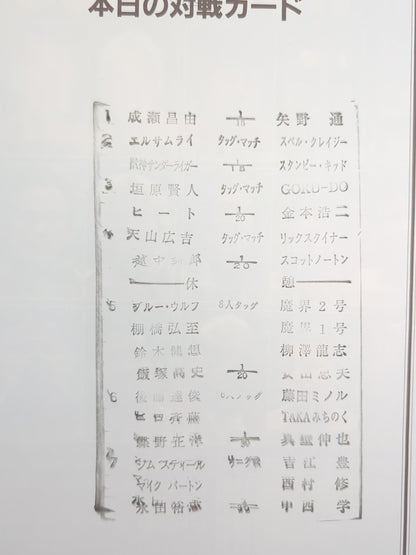 本日の対戦カード
1 成瀬昌由 1/15 矢野 通
2 エルサムライ タッグ・マッチ スペル・クレイジー
獣神サンダーライガー 1/15 スタンピー・キッド
3 垣原賢人 タッグ・マッチ GOKU-DO
ヒート 1/20 金本浩二
4 天山広吉 タッグ・マッチ リックスタイナー
越中詩郎 1/20 スコットノートン
休 憩
5 ブルー・ウルフ 8人タッグ 魔界2号
棚橋弘至 魔界1号
鈴木健想 柳澤龍志
飯塚高史 1/20 安田忠夫
6 後藤達俊 6人タッグ 藤田ミノル
ヒロ斉藤 TAKAみちのく
蝶野正洋 真壁伸也
7 ジム スティール 吉江 豊
マイク バートン 西村 修
永田裕志 中西 学